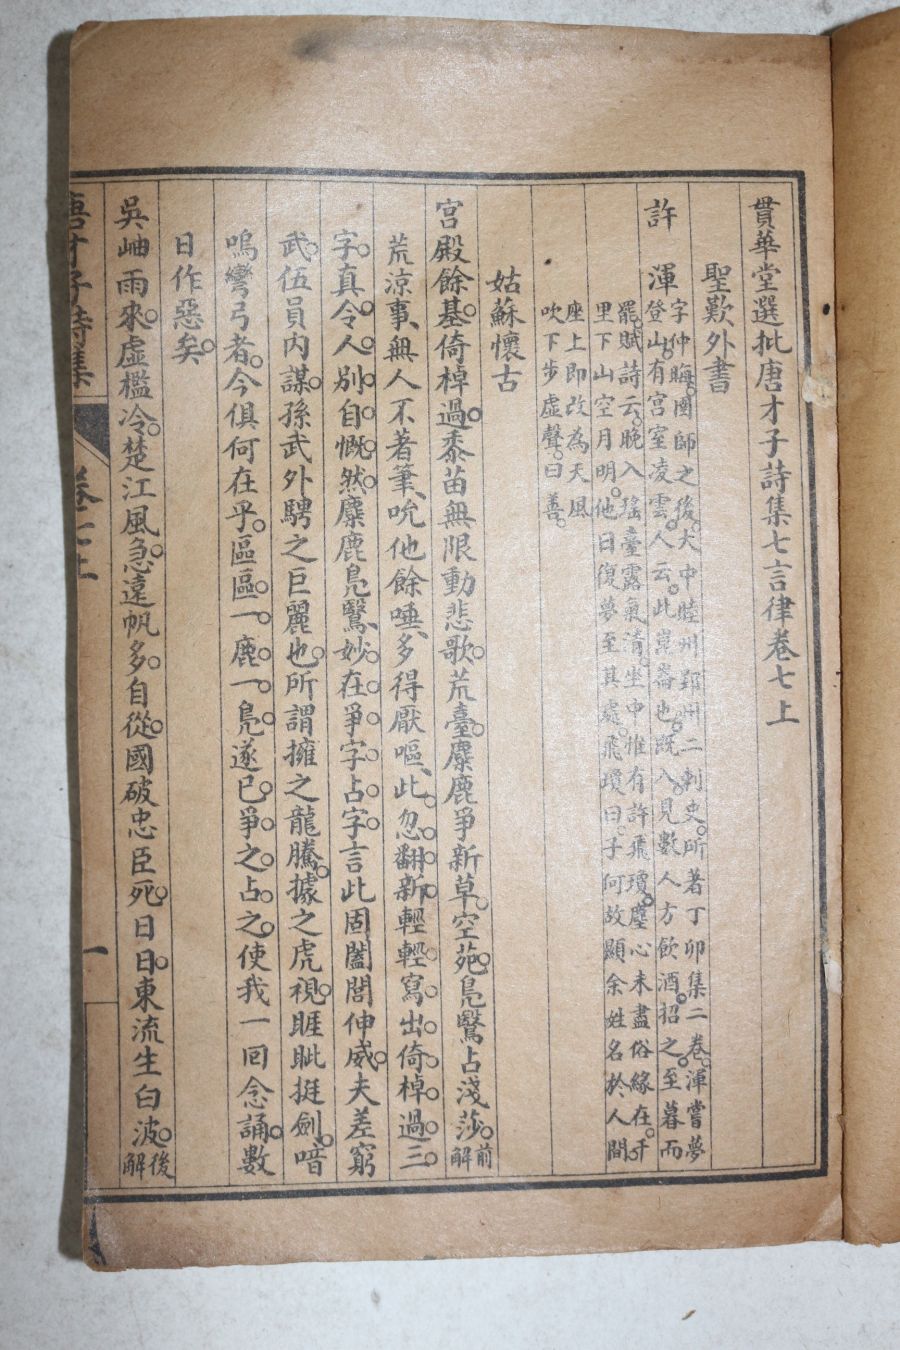 貫華堂選批唐才子詩集七言律卷七上
聖歎外書
許渾
字仲晦。圉師之後。大中睦州郢州二刺史。所著丁卯集二卷。渾嘗夢
登山。有宮室凌雲。人云。此崑崙也。既入。見數人方飲酒。招之。至暮而
罷。賦詩云。曉入瑤臺露氣清。坐中惟有許飛瓊。塵心未盡俗緣在。十
里下山空月明。他日復夢至其處。飛瓊曰。子何故顯余姓名於人間
座上即改為天風
吹下步虛聲。曰善。
姑蘇懷古
宮殿餘基倚棹過。黍苗無限動悲歌。荒臺麋鹿爭新草。空苑鳧鷖占淺莎。前解
荒涼事、無人不著筆、吮他餘唾、多得厭嘔、此。忽翻新。輕輕寫出倚棹過三
字。真令人別自慨然。麋鹿鳧鷖、妙在爭字占字。言此固闔閭伸威。夫差窮
武。伍員內謀。孫武外騁之巨麗也。所謂擁之龍騰。據之虎視。睚眦挺劍。喑
嗚彎弓者。今俱何在乎。區區一鹿一鳧。遂已爭之占之。使我一回念誦。數
日作惡矣。
吳岫雨來。虛檻冷。楚江風急。遠帆多。自從國破忠臣死。日日東流生白波。後解
唐才子詩集
卷七上
一